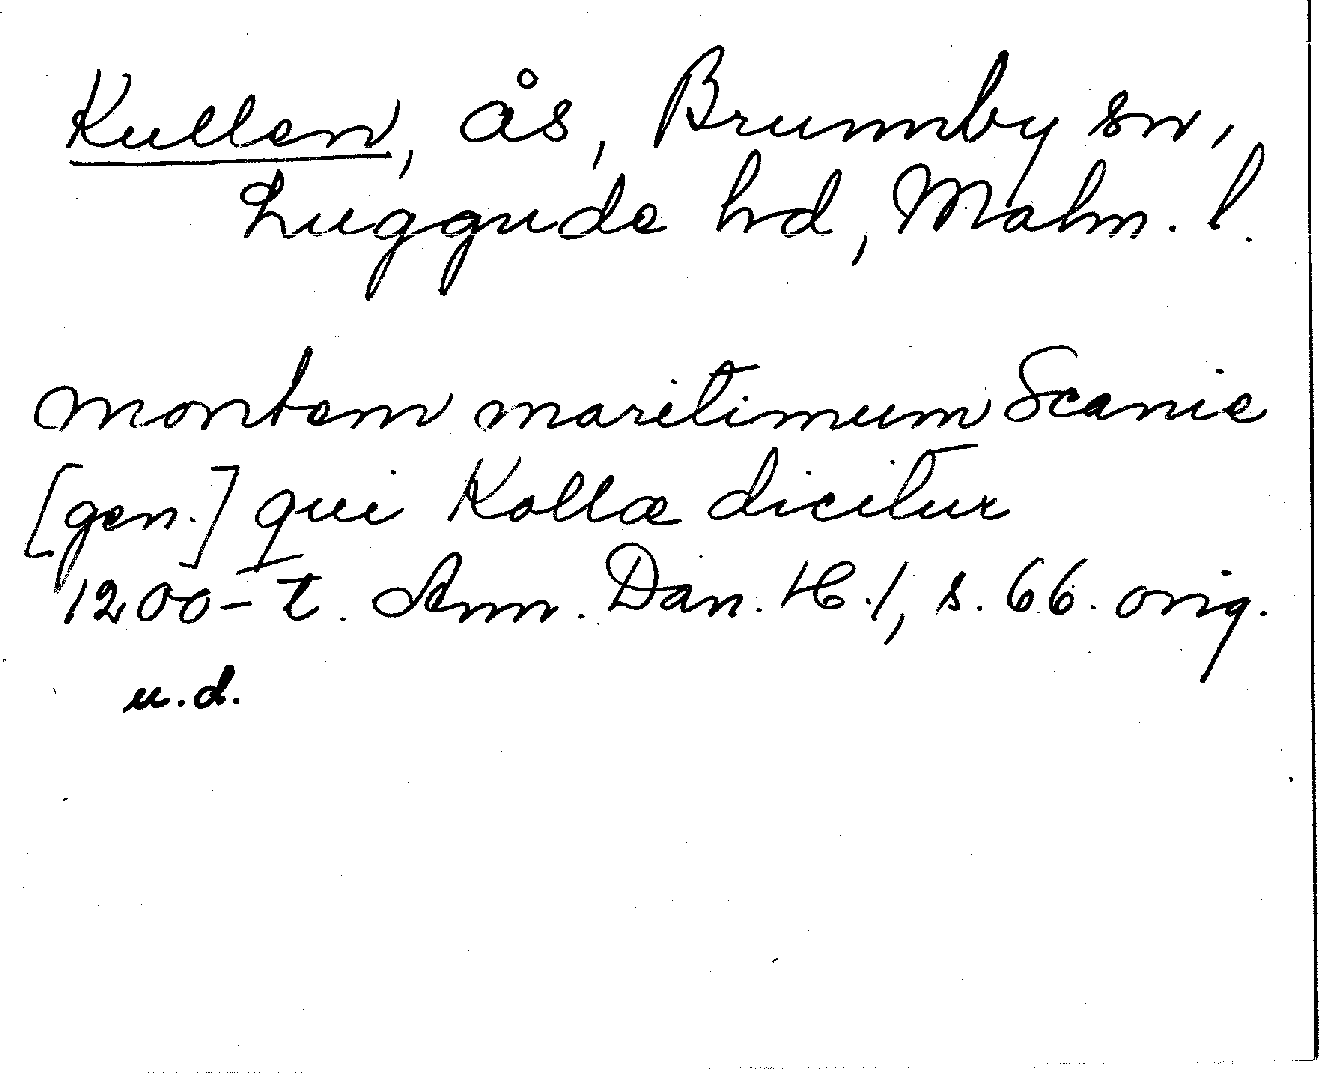 Kullen, ås, Brunnby sn,
Luggude hd, Malm. l.
montem maritimum Scanie
[gen.] qui Kollæ dicitur
1200-t. Ann. Dan. H. 1, s. 66. orig.
u.d.